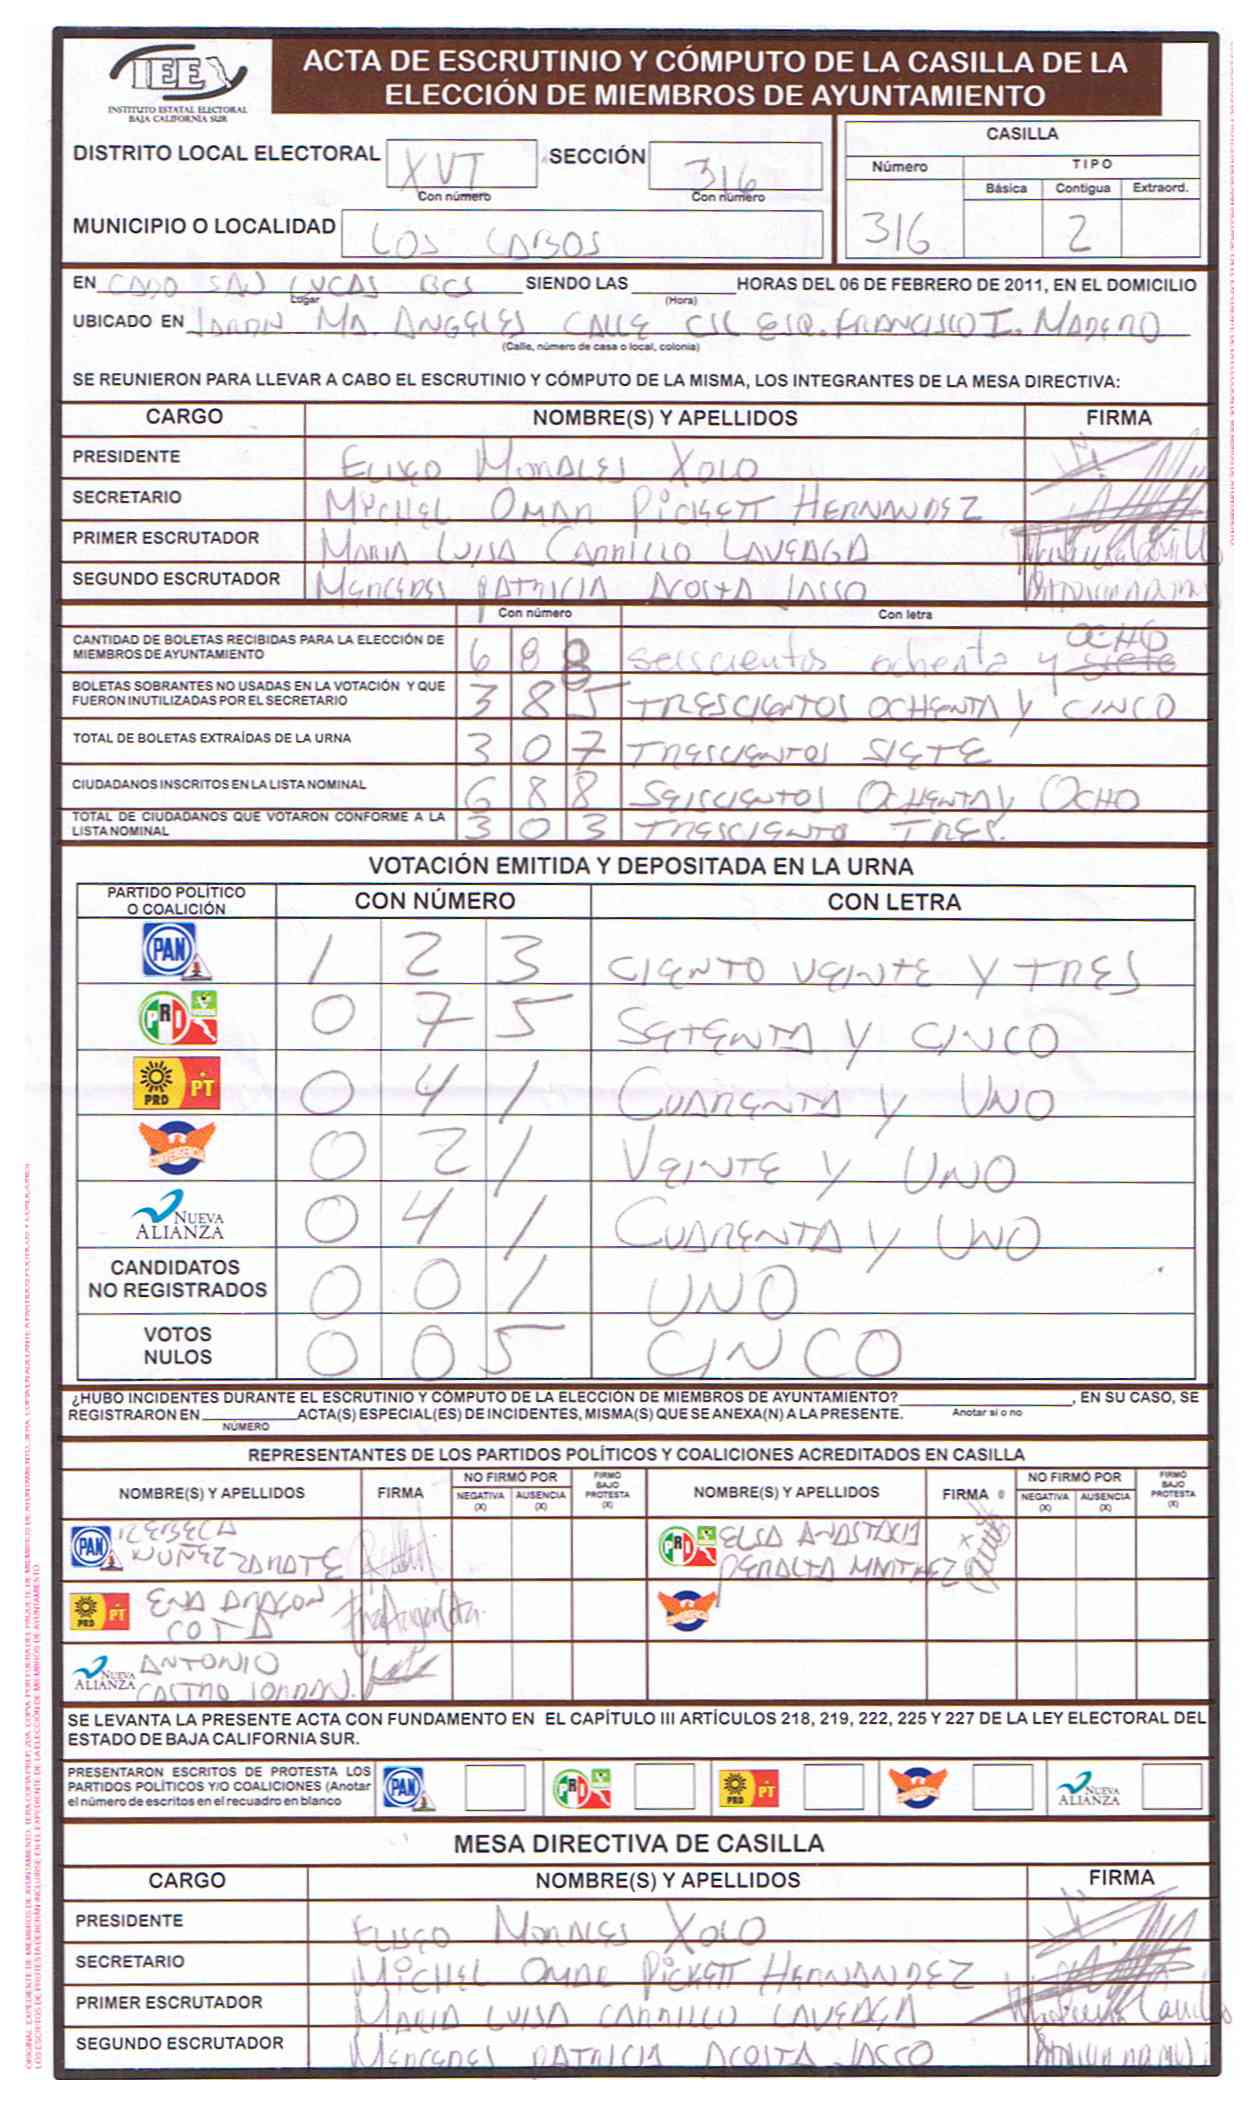 IEE
INSTITUTO ESTATAL ELECTORAL
BAJA CALIFORNIA SUR
ACTA DE ESCRUTINIO Y CÓMPUTO DE LA CASILLA DE LA
ELECCIÓN DE MIEMBROS DE AYUNTAMIENTO
DISTRITO LOCAL ELECTORAL XVI SECCIÓN 316
Con número Con número
MUNICIPIO O LOCALIDAD LOS CABOS
CASILLA
Número TIPO
Básica Contigua Extraord.
316 2
EN CABO SAN LUCAS BCS SIENDO LAS HORAS DEL 06 DE FEBRERO DE 2011, EN EL DOMICILIO
Lugar (Hora)
UBICADO EN JARDIN MA. ANGELES CALLE CSL ESQ. FRANCISCO I. MADERO
(Calle, número de casa o local, colonia)
SE REUNIERON PARA LLEVAR A CABO EL ESCRUTINIO Y CÓMPUTO DE LA MISMA, LOS INTEGRANTES DE LA MESA DIRECTIVA:
CARGO NOMBRE(S) Y APELLIDOS FIRMA
PRESIDENTE ELISEO MORALES XOLO
SECRETARIO MYCHEL OMAR PICKETT HERNANDEZ
PRIMER ESCRUTADOR MARIA LUISA CARRILLO LAVEAGA
SEGUNDO ESCRUTADOR MERCEDES PATRICIA ACOSTA JASSO
Con número Con letra
CANTIDAD DE BOLETAS RECIBIDAS PARA LA ELECCIÓN DE
MIEMBROS DE AYUNTAMIENTO 6 8 8 seiscientos ochenta y siete OCHO
BOLETAS SOBRANTES NO USADAS EN LA VOTACIÓN Y QUE
FUERON INUTILIZADAS POR EL SECRETARIO 3 8 5 TRESCIENTOS OCHENTA Y CINCO
TOTAL DE BOLETAS EXTRAÍDAS DE LA URNA 3 0 7 TRESCIENTOS SIETE
CIUDADANOS INSCRITOS EN LA LISTA NOMINAL 6 8 8 SEISCIENTOS OCHENTA Y OCHO
TOTAL DE CIUDADANOS QUE VOTARON CONFORME A LA
LISTA NOMINAL 3 0 3 TRESCIENTO TRES.
VOTACIÓN EMITIDA Y DEPOSITADA EN LA URNA
PARTIDO POLÍTICO
O COALICIÓN CON NÚMERO CON LETRA
PAN 1 2 3 CIENTO VEINTE Y TRES
PRI 0 7 5 SETENTA Y CINCO
PRD PT 0 4 1 CUARENTA Y UNO
CONVERGENCIA 0 2 1 VEINTE Y UNO
NUEVA ALIANZA 0 4 1 CUARENTA Y UNO
CANDIDATOS
NO REGISTRADOS 0 0 1 UNO
VOTOS
NULOS 0 0 5 CINCO
¿HUBO INCIDENTES DURANTE EL ESCRUTINIO Y CÓMPUTO DE LA ELECCIÓN DE MIEMBROS DE AYUNTAMIENTO? , EN SU CASO, SE
REGISTRARON EN ACTA(S) ESPECIAL(ES) DE INCIDENTES, MISMA(S) QUE SE ANEXA(N) A LA PRESENTE. Anotar sí o no
NÚMERO
REPRESENTANTES DE LOS PARTIDOS POLÍTICOS Y COALICIONES ACREDITADOS EN CASILLA
NOMBRE(S) Y APELLIDOS FIRMA NO FIRMÓ POR NEGATIVA (X) AUSENCIA (X) FIRMÓ BAJO PROTESTA (X) NOMBRE(S) Y APELLIDOS FIRMA NO FIRMÓ POR NEGATIVA (X) AUSENCIA (X) FIRMÓ BAJO PROTESTA (X)
PAN REBECA
NUÑEZ ZARATE
PRI ELSA ANASTACIA
PERALTA
PRD PT ENA ARAGON
COTA
NUEVA ALIANZA ANTONIO
CASTRO
SE LEVANTA LA PRESENTE ACTA CON FUNDAMENTO EN EL CAPÍTULO III ARTÍCULOS 218, 219, 222, 225 Y 227 DE LA LEY ELECTORAL DEL
ESTADO DE BAJA CALIFORNIA SUR.
PRESENTARON ESCRITOS DE PROTESTA LOS
PARTIDOS POLÍTICOS Y/O COALICIONES (Anotar
el número de escritos en el recuadro en blanco
PAN PRI PRD PT NUEVA ALIANZA
MESA DIRECTIVA DE CASILLA
CARGO NOMBRE(S) Y APELLIDOS FIRMA
PRESIDENTE ELISEO MORALES XOLO
SECRETARIO MICHEL OMAR PICKETT HERNANDEZ
PRIMER ESCRUTADOR MARIA LUISA CARRILLO LAVEAGA
SEGUNDO ESCRUTADOR MERCEDES PATRICIA ACOSTA JASSO